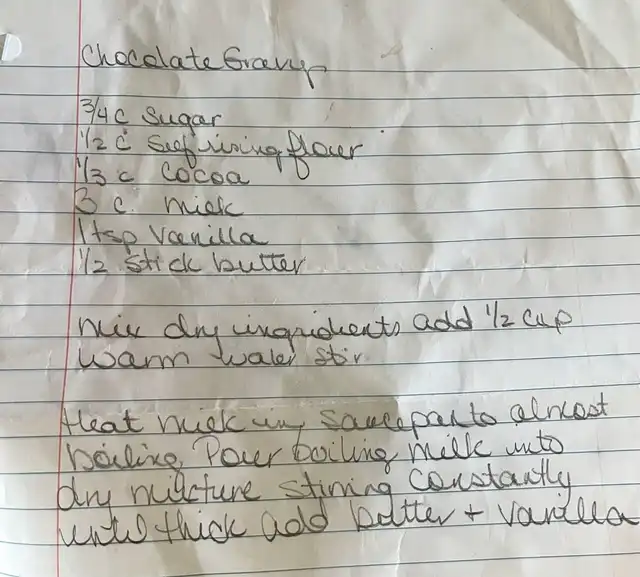 Chocolate Gravy
3/4 c Sugar
1/2 c Self rising flour
1/3 c Cocoa
3 c. milk
1 tsp Vanilla
1/2 stick butter
mix dry ingridients add 1/2 cup
warm water stir
Heat milk in saucepan to almost
boiling. Pour boiling milk into
dry mixture stirring constantly
until thick add butter + vanilla